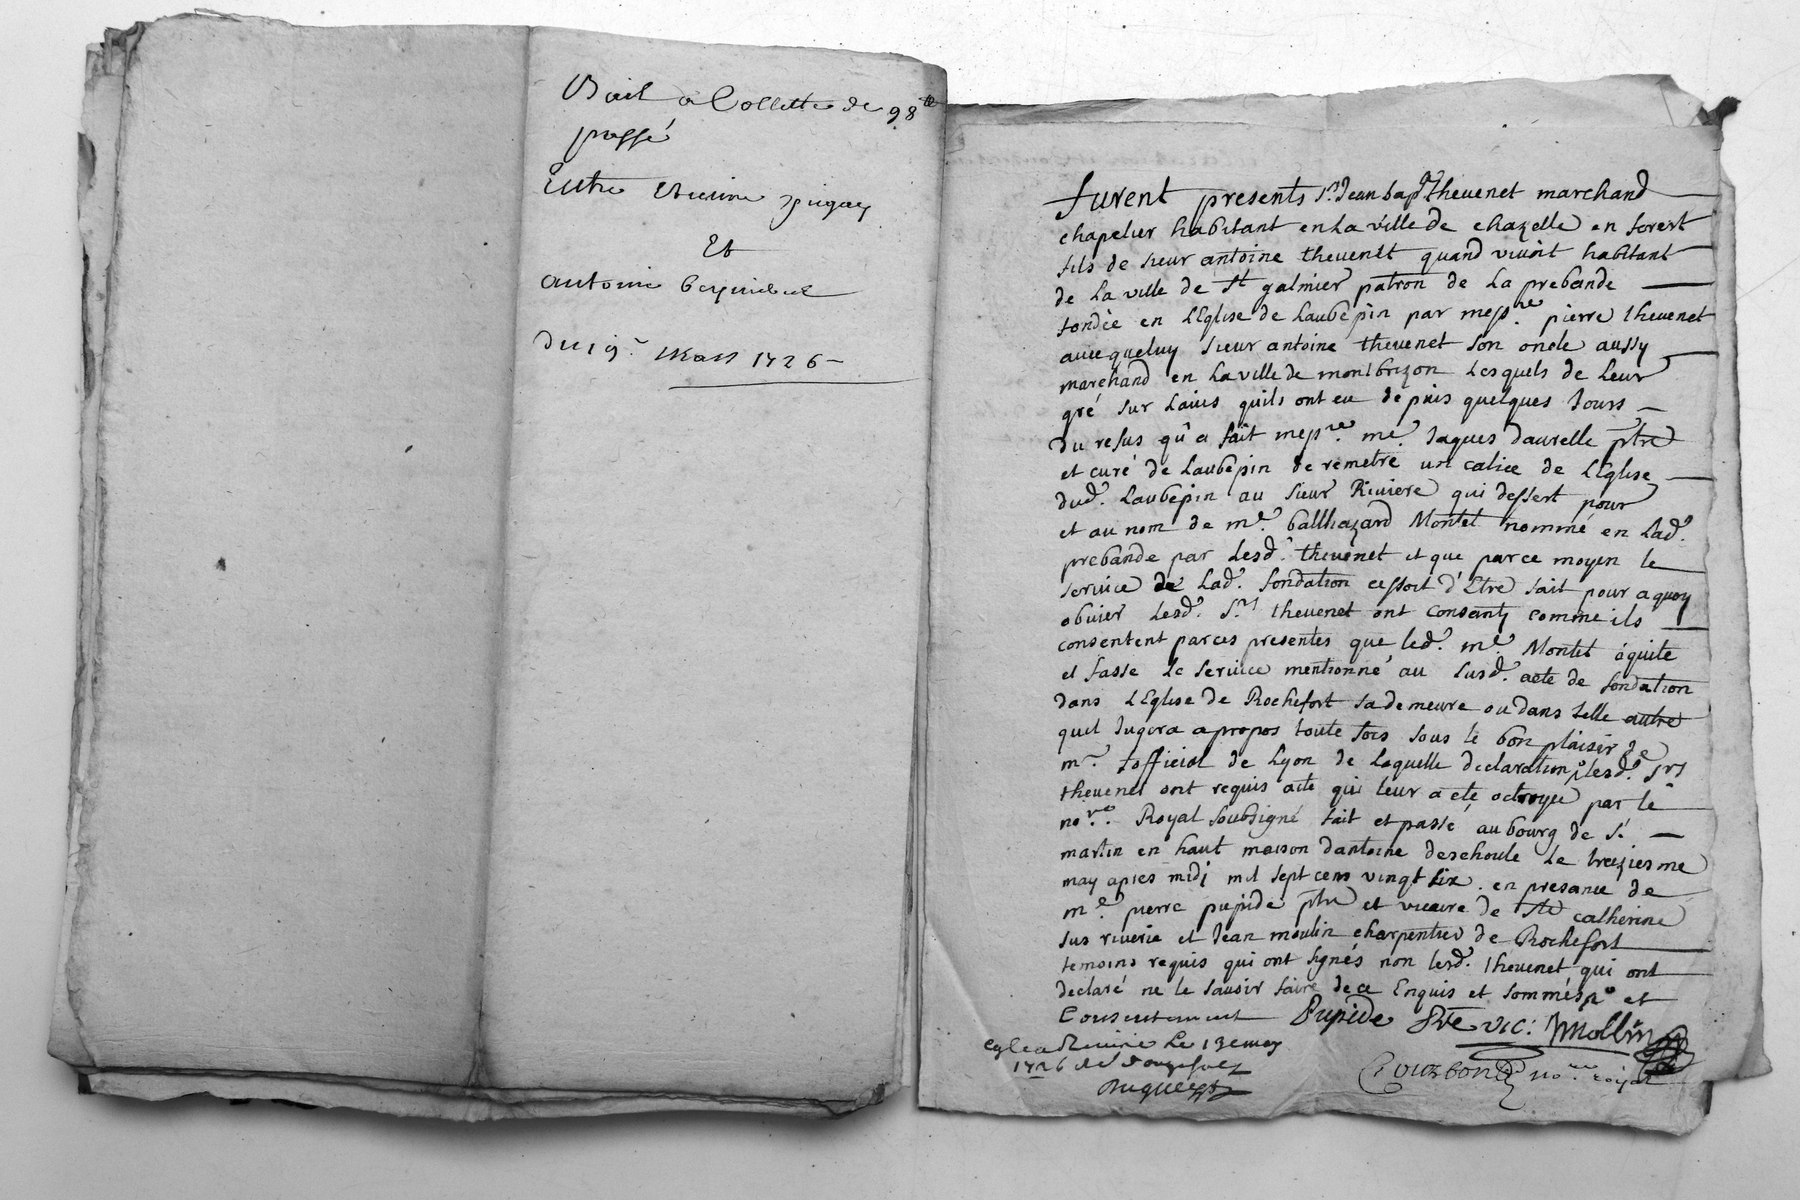 Bail à Collette de 98 tt
passé
Entre
Et
antoine
Du 19e Mars 1726
furent presents Sr. Jean bapt thevenet marchand
chapelier habitant en La ville de chazelle en forest
fils de sieur antoine thevenet quand vivoit habitant
de La ville de St galmier patron de La prebande
fondée en L'Eglise de Laubépin par messre. pierre thevenet
avecqueluy Sieur antoine thevenet son oncle aussy
marchand en La ville de montbrizon Lesquels de Leur
gré sur Lavis quils ont eu depuis quelques Jours
du refus qu'a fait messre. me. Jaques daurelle ptre
et curé de Laubépin de remetre un calice de L'Eglise
dud. Laubépin au sieur Riviere qui dessert pour
et au nom de me. balthazard Montet nommé en Lad.
prebande par Lesd. thevenet et que par ce moyen le
service de Lad. fondation cessoit d'Etre fait pour a quoy
obvier Lesd. Srs thevenet ont consenty comme ils
consentent par ces presentes que led. me. Montet aquite
et fasse Le service mentionné au susd. acte de fondation
dans L'Eglise de Rochefort sa demeure ou dans telle autre
quil Jugera apropos toute fois sous le bon plaisir de
mr. Lofficial de Lyon de Laquelle declaration Lesd. srs
thevenet ont requis acte qui leur a eté octroyé par le
nore. Royal soubsigné fait et passé au bourg de St.
martin en haut maison dantoine deschoule Le treiziesme
may apres midi mil sept cens vingt six. en presance de
me. pierre pupide ptre et vicaire de Ste catherine
sus riverie et Jean moulin charpentier de Rochefort
temoins requis qui ont signés non lesd. thevenet qui ont
declaré ne le savoir faire de ce Enquis et sommés et
Consentement Pupide Ptre vic: Mollin
Le 13e may
1726
Bourbon nore royal